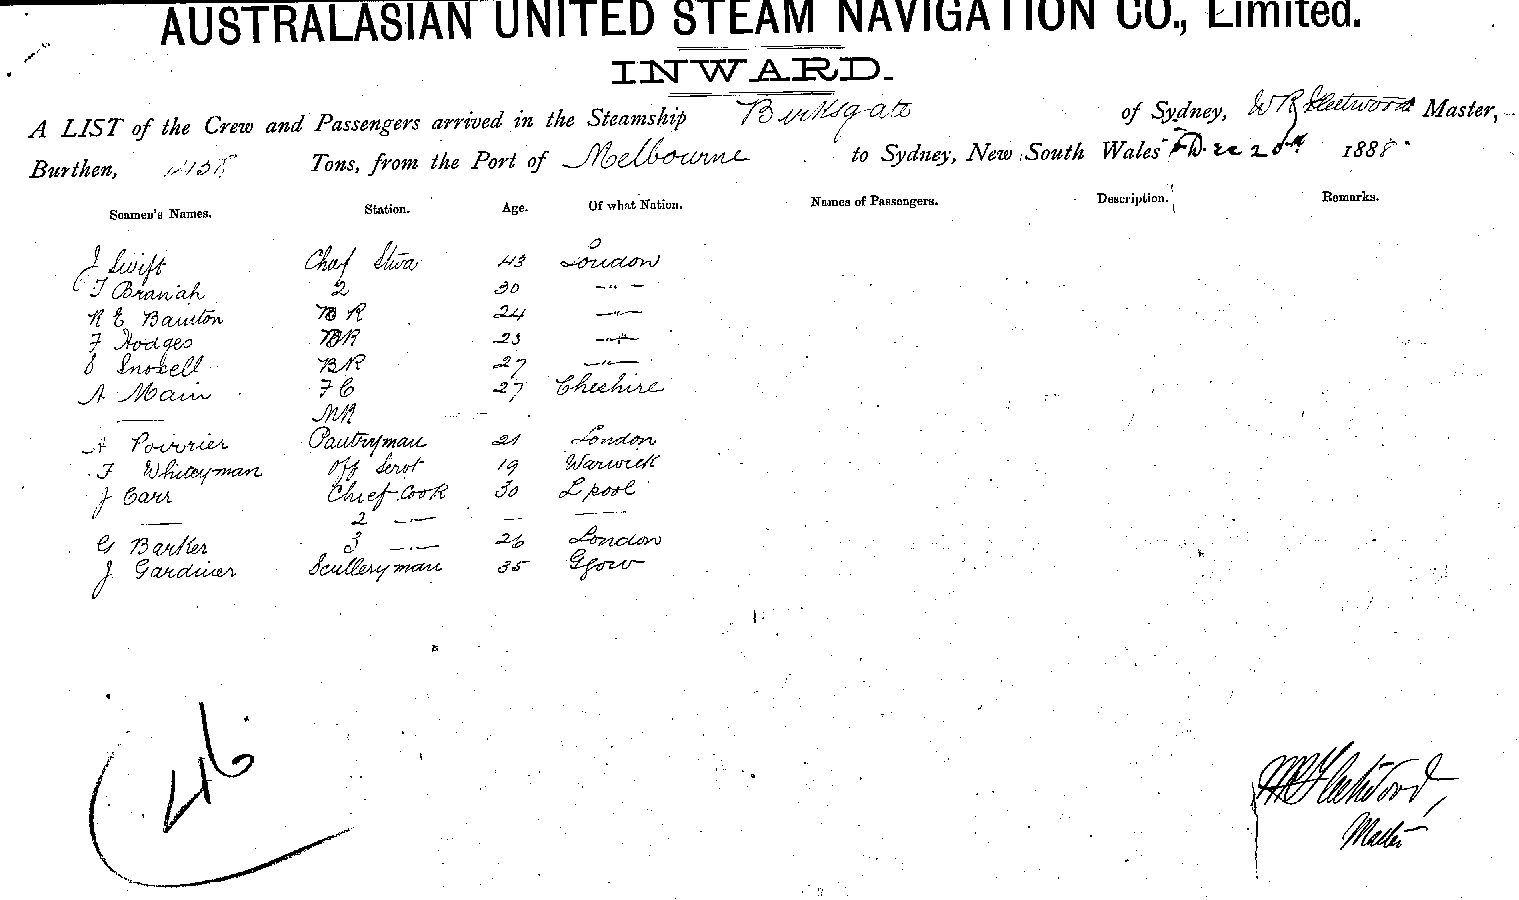 AUSTRALASIAN UNITED STEAM NAVIGATION CO., Limited.
INWARD.
A LIST of the Crew and Passengers arrived in the Steamship Birksgate of Sydney, W R Fleetwood Master,
Burthen, Tons, from the Port of Melbourne to Sydney, New South Wales Dec 20th 1888
Seamen's Names. Station. Age. Of what Nation. Names of Passengers. Description. Remarks.
J Swift Chef Stwd 43 London
T Branah 2 30 — " —
R E Bainton BR 24 — " —
F Hodges BR 23 — " —
S Snokell BR 27 — " —
A Main F C 27 Cheshire
—
A Poirrier Pantryman 21 London
F Whiteyman Off Servt 19 Warwick
J Carr Chief Cook 30 Lpool
— 2 — " — — —
G Barker 3 — " — 26 London
J Gardiner Sculleryman 35 Ggow
46
WR Fleetwood,
Master